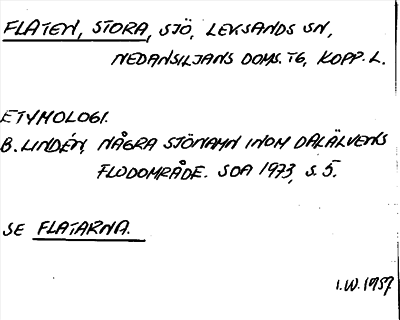 FLATEN, STORA, SJÖ, LEKSANDS SN,
NEDANSILJANS DOMS. TG, KOPP. L.
ETYMOLOGI.
B. LINDÉN, NÅGRA SJÖNAMN INOM DALÄLVENS
FLODOMRÅDE. SOA 1973, S. 5.
SE FLATARNA.
I.W. 1987